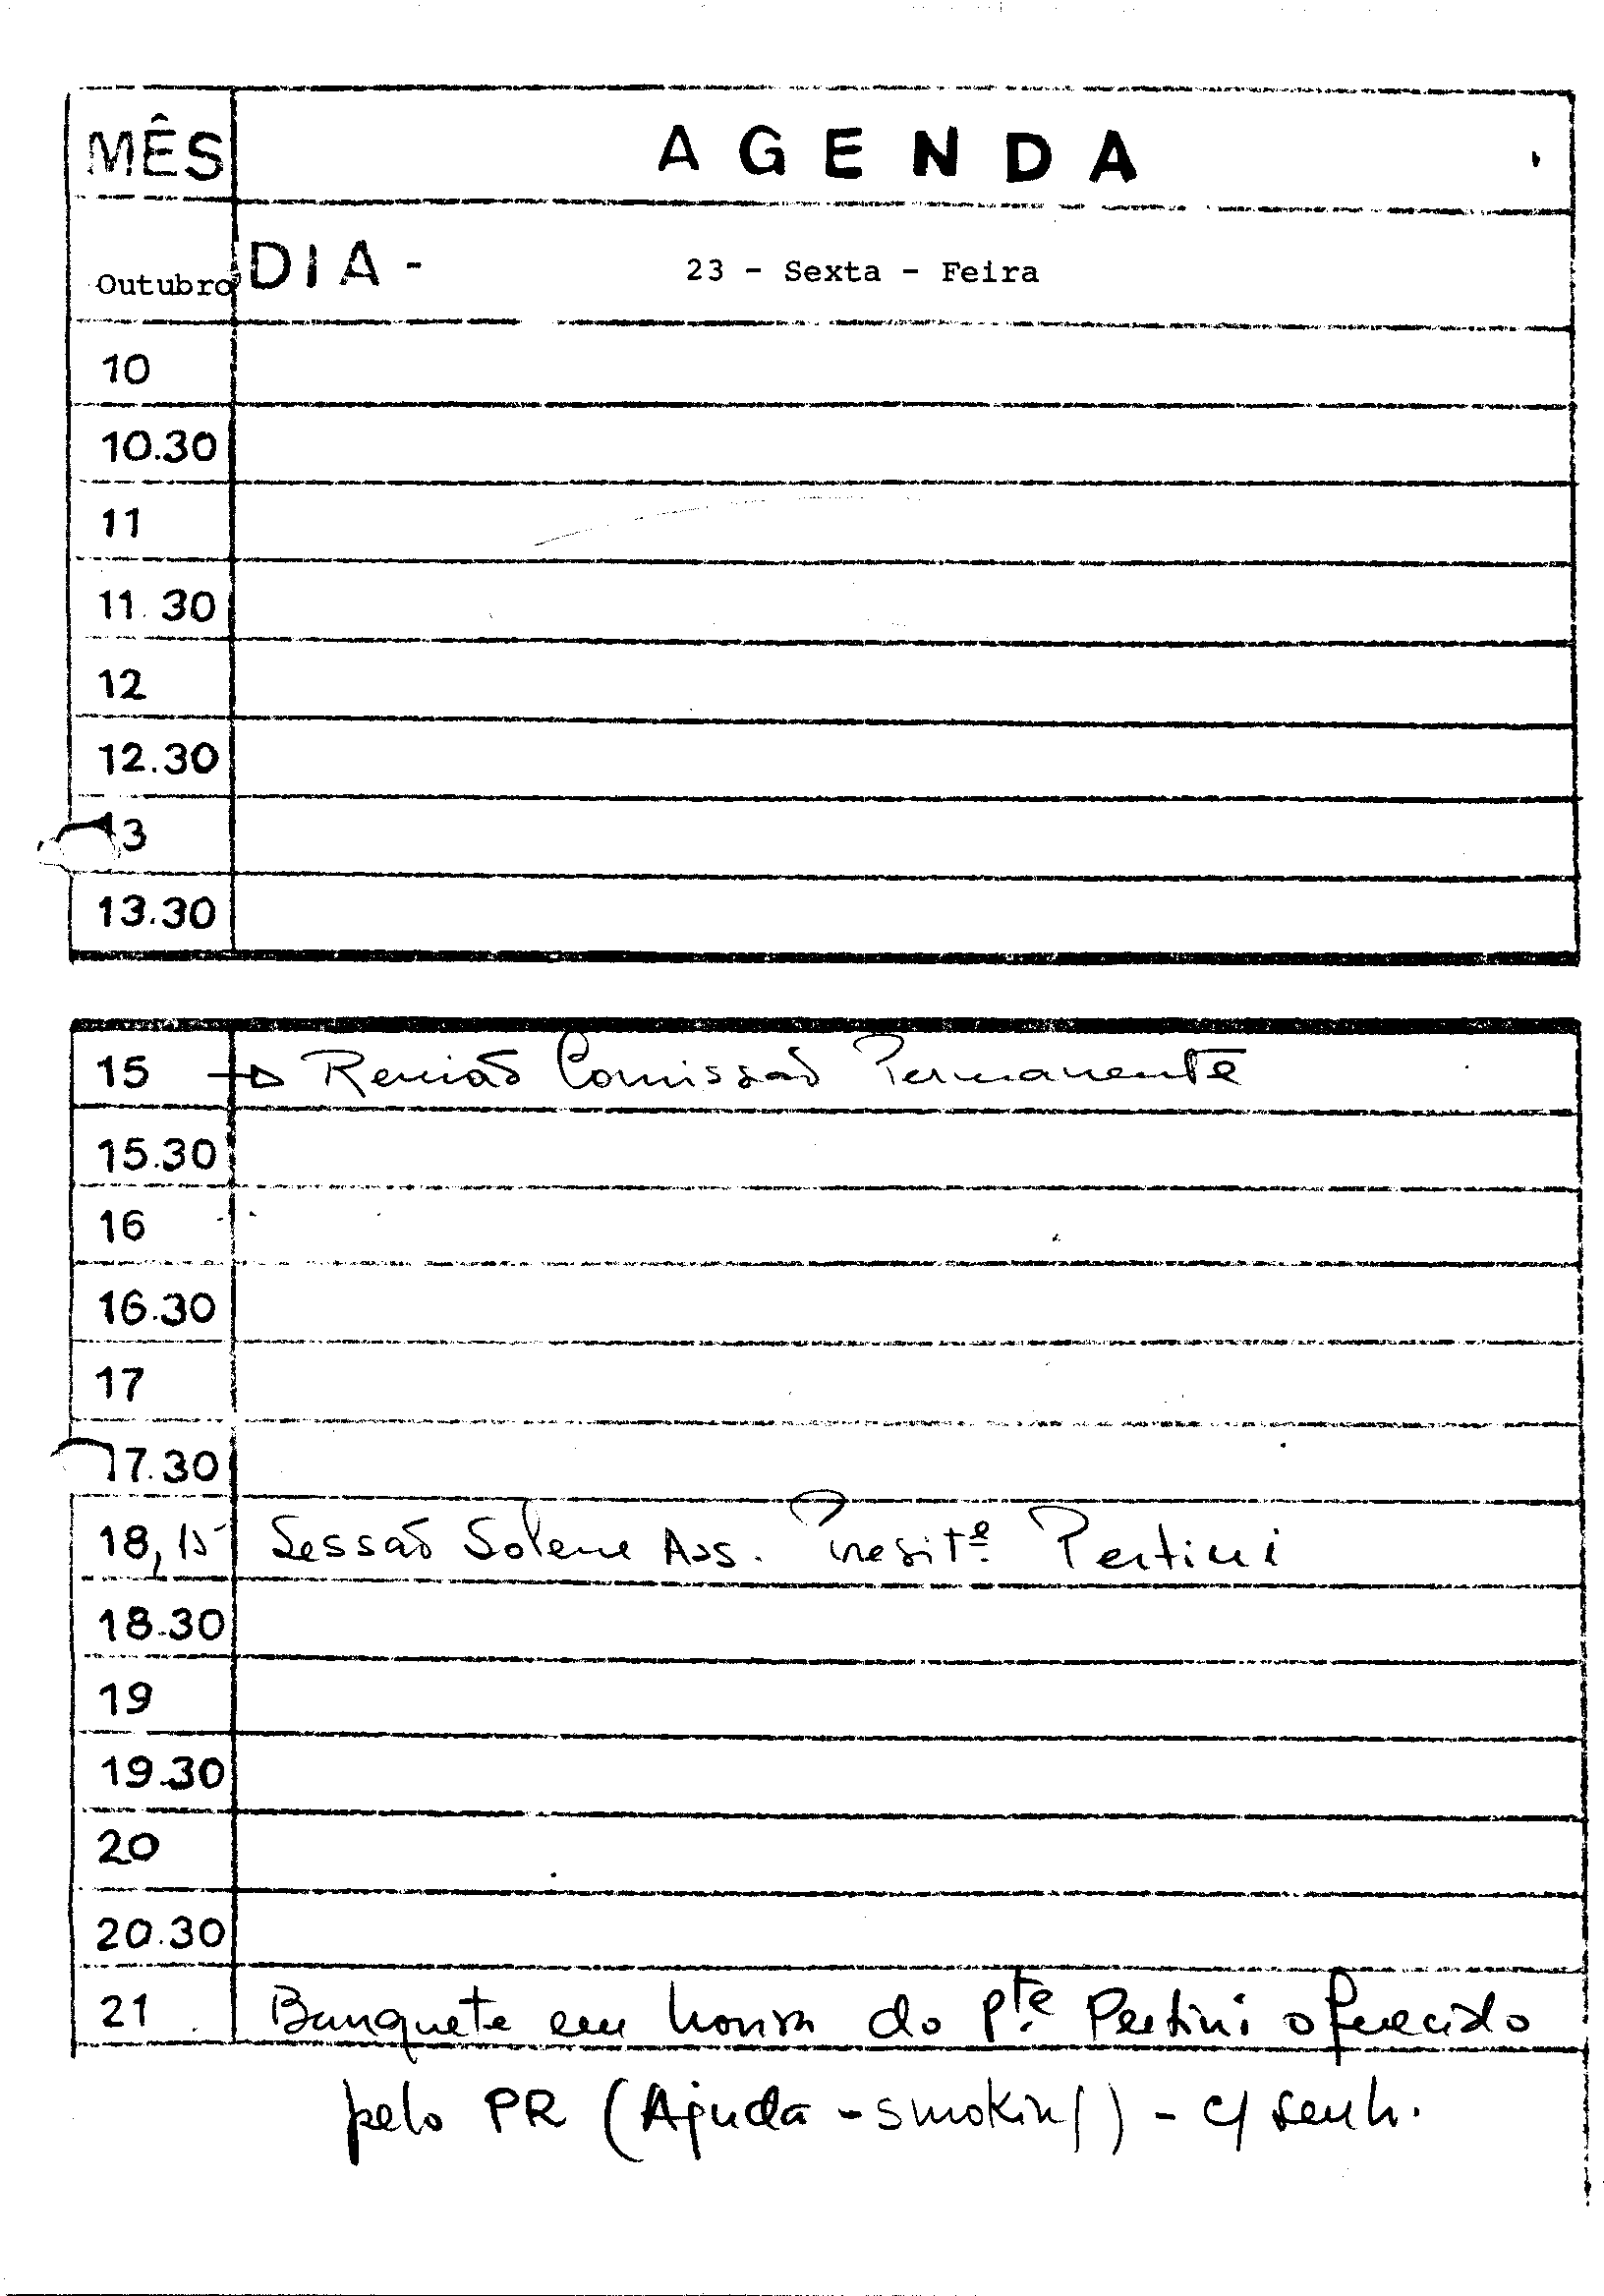 MÊS AGENDA
Outubro DIA - 23 - Sexta - Feira
10
10.30
11
11.30
12
12.30
13
13.30
15 → Reunião Comissão Permanente
15.30
16
16.30
17
17.30
18,15 Sessão Solene Ass. Presitº. Pertini
18.30
19
19.30
20
20.30
21 Banquete em honra do Pte. Pertini oferecido
pelo PR (Ajuda - smoking) - c/ senh.